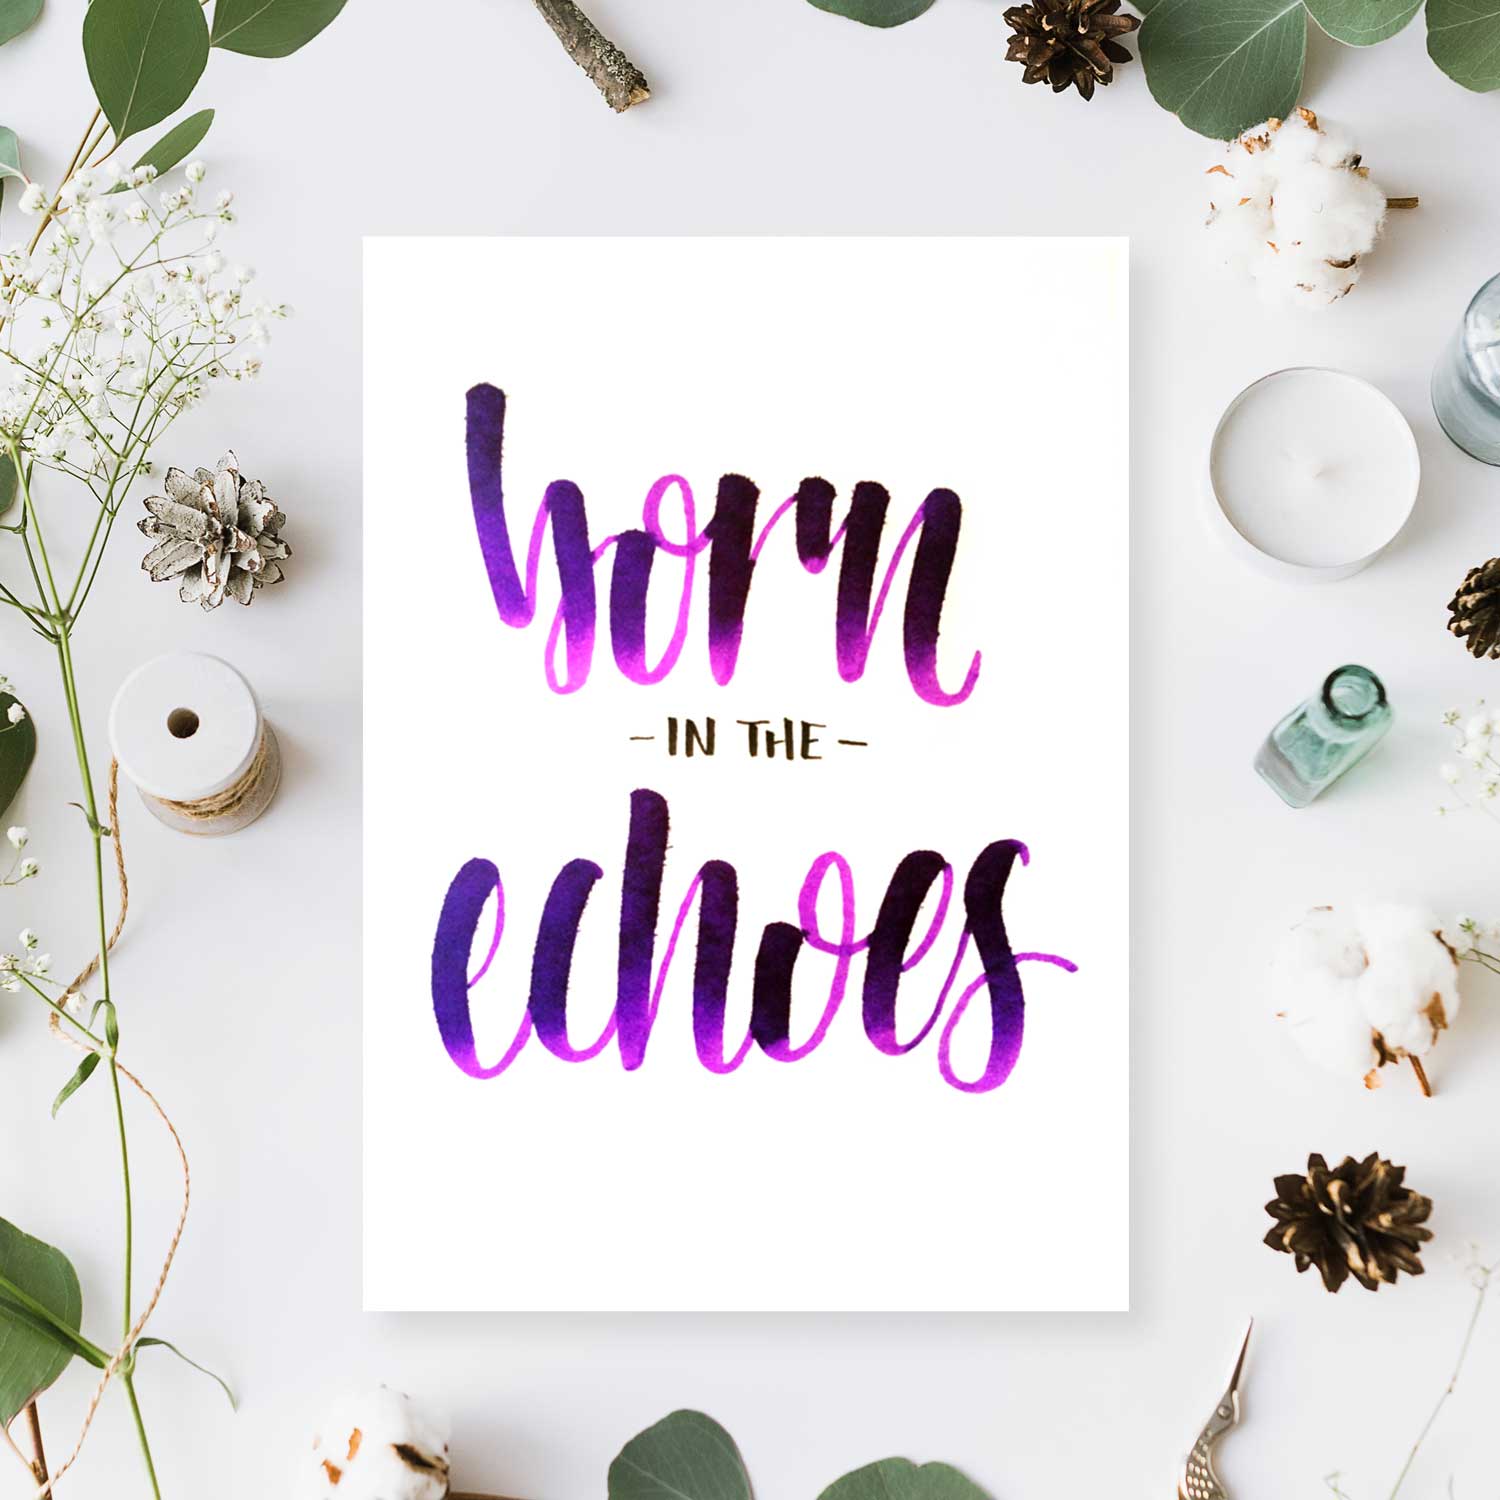 born
- IN THE -
echoes